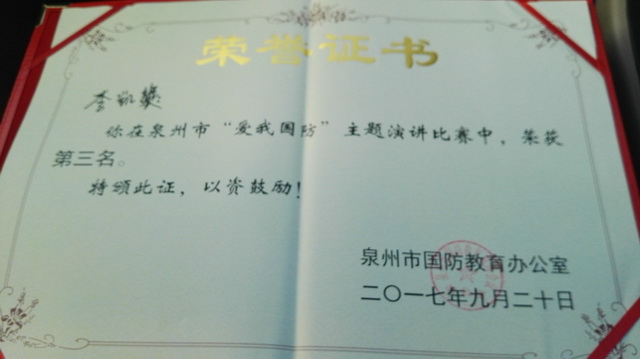 荣誉证书
你在泉州市“爱我国防”主题演讲比赛中，荣获
第三名。
特颁此证，以资鼓励！
泉州市国防教育办公室
二〇一七年九月二十日